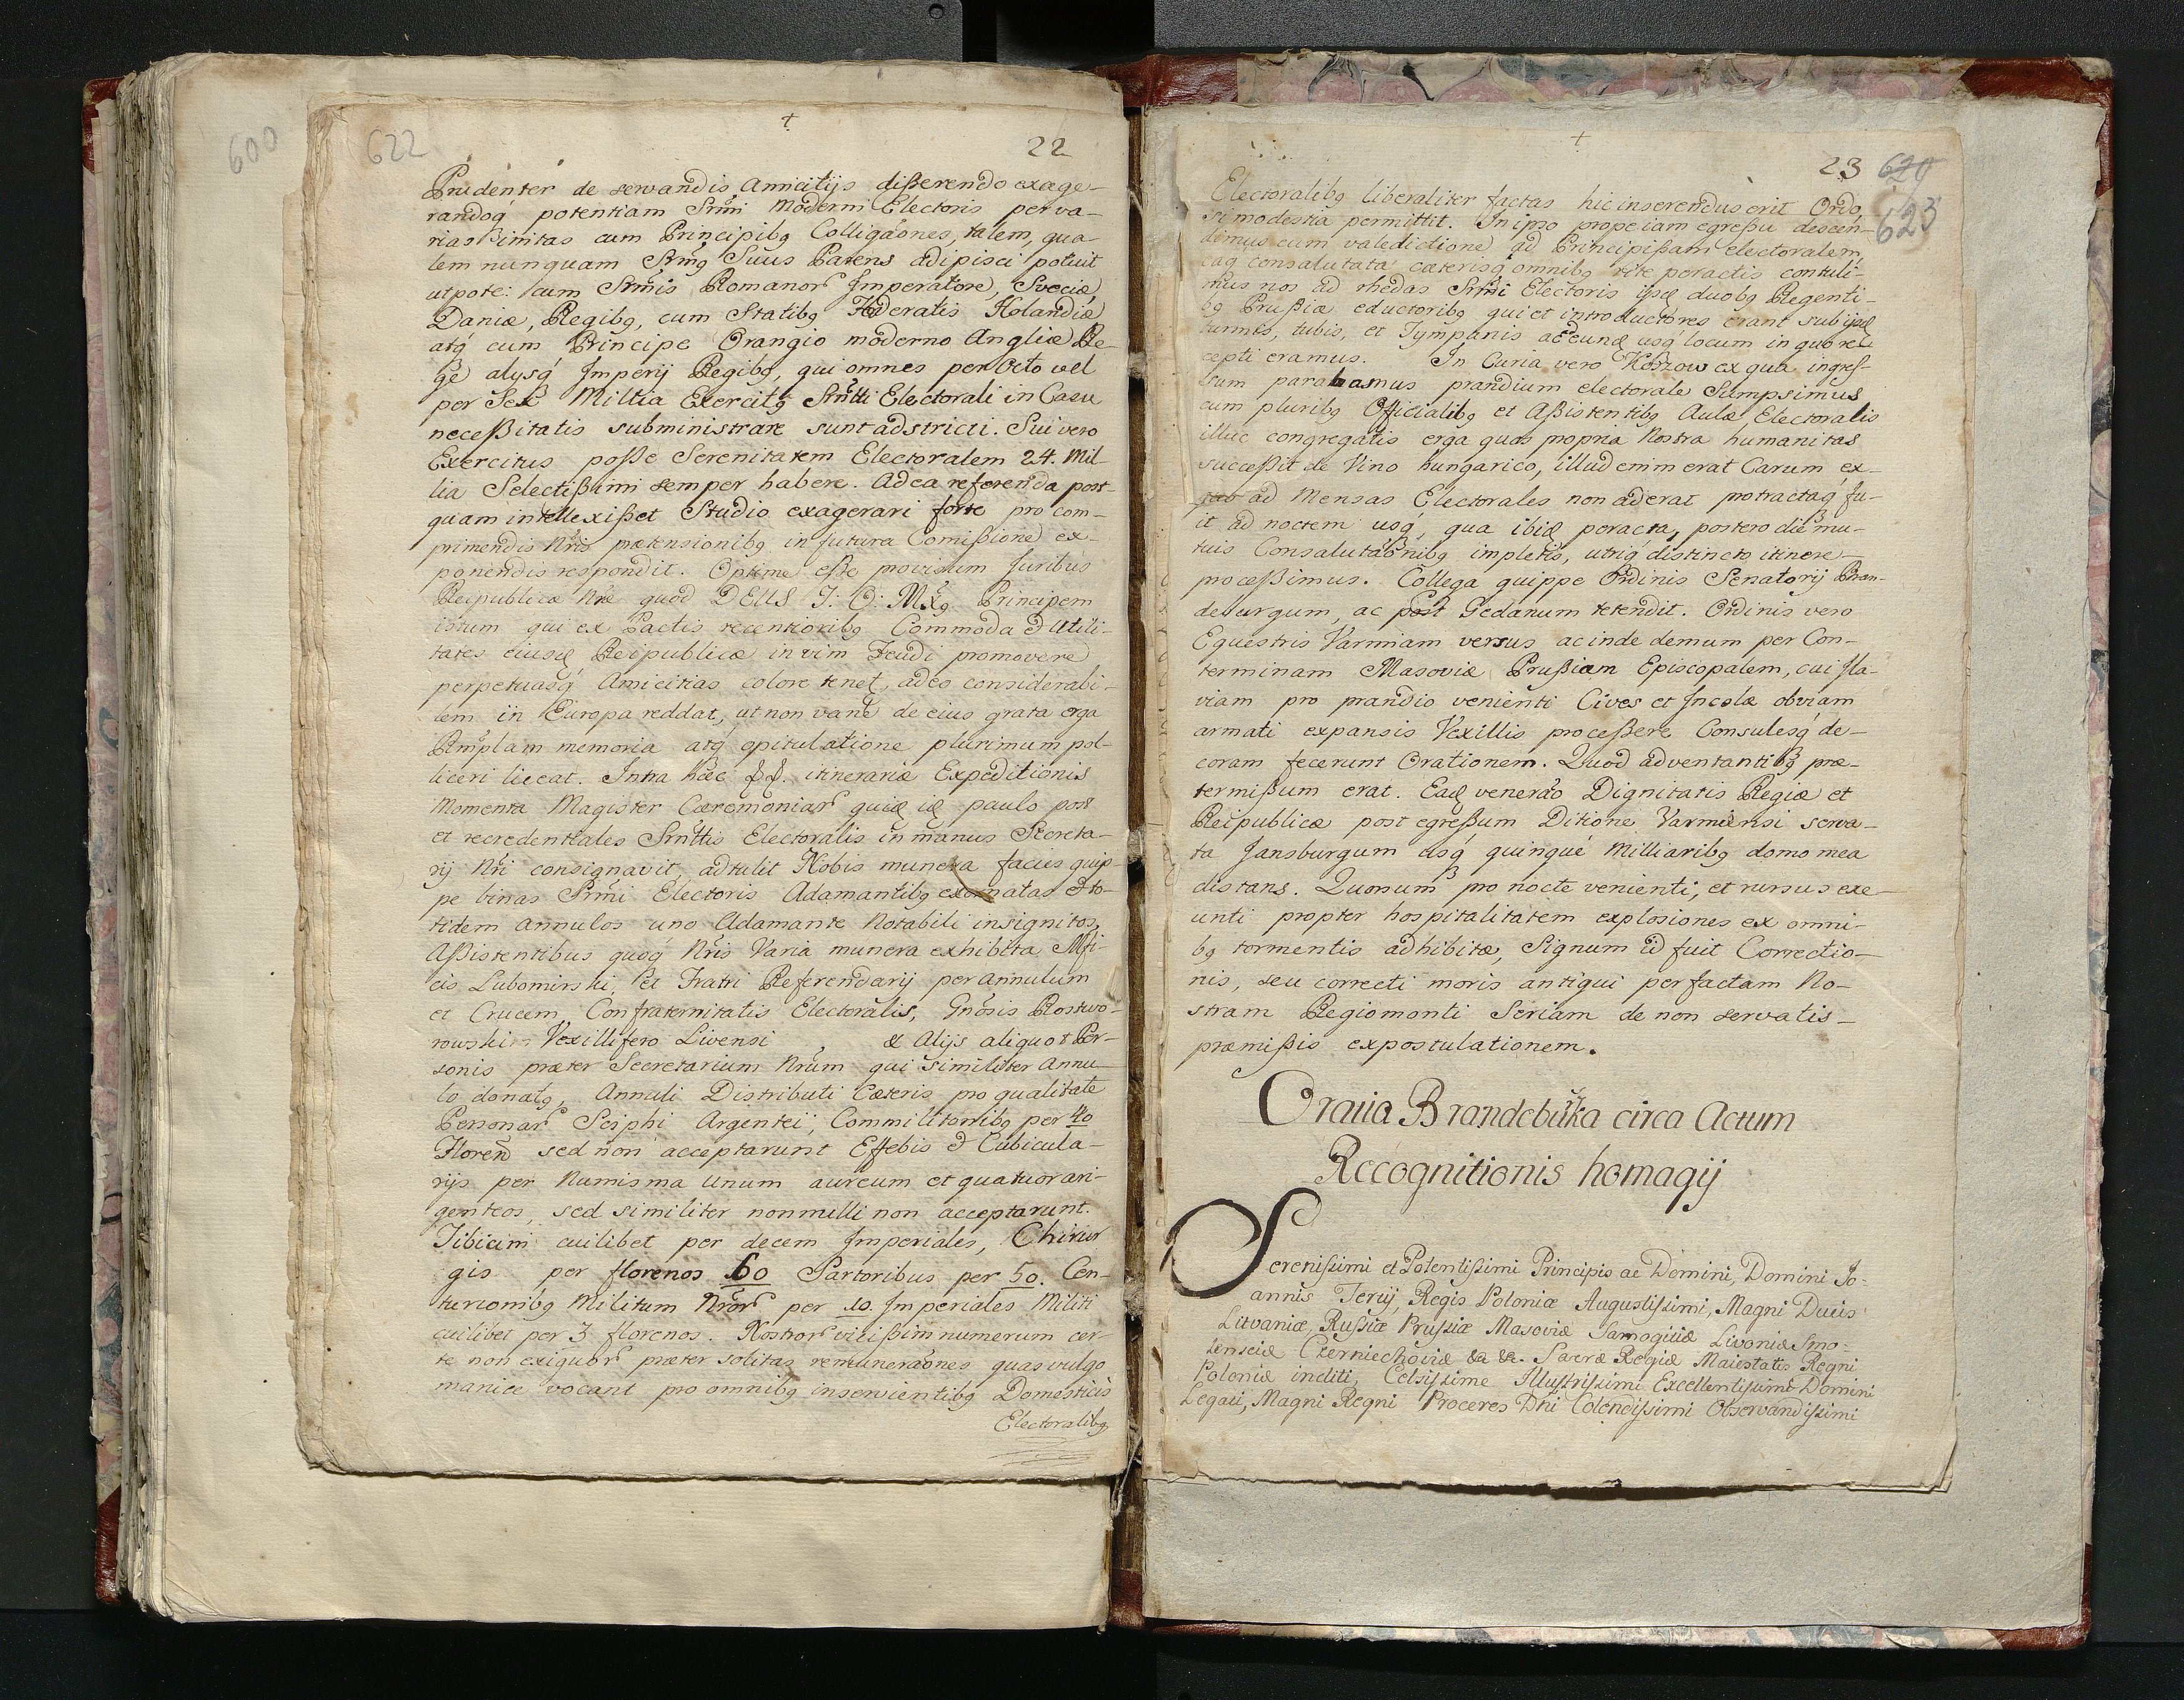 600
622
†
22
Prudenter de servandis Amicitijs disserendo exage-
randoq́ potentiam Srm̃i Moderni Electoris per va-
rias Initas cum Principibꝯ Colligãones, talem, qua-
lem nunquam Srm̃ꝯ Suus Parens adipisci potuit
utpote: cum Srm̃is Romanor Imperatore, Sveciæ,
Daniæ, Regibꝯ, cum Statibꝯ Fœderatis Holandiæ
atq́ cum Principe Orangio moderno Angliæ Re-
ge alysq́ Imperij Regibꝯ, qui omnes per Octo vel
per Sex Millia Exercitꝯ Srñtti Electorali in Casu
necessitatis subministrare sunt adstricti. Sui vero
Exercitus posse Serenitatem Electoralem 24. Mil-
lia Selectissimi semper habere. Ad ea referenda post-
quam intellexisset Studio exagerari forte pro com-
primendis Nr̃is prætensionibꝯ in futura Comissione ex-
ponendis respondit. Optime esse provisum Juribus
Reipublicæ Nr̃æ quod DEUS T: O: Mx̃ꝯ Principem
istum qui ex Pactis recentioribꝯ Commoda & Utili-
tates eiusꝗ Reipublicæ in vim Feudi promovere
perpetuasq́ Amicitias colore tenet, adeo considerabi-
lem in Europa reddat, ut non vane de eius grata erga
Rm̃plam memoria atq́ opitulatione plurimum pol-
liceri liceat. Intra hæc ff. itinerariæ Expeditionis
Momenta Magister Cæremoniar quiꝗ iꝗ paulo post
et recredentiales Srñttis Electoralis in manus Secreta-
rij Nr̃i consignavit, adtulit Nobis munera facies quip-
pe binas Srm̃i Electoris Adamantibꝯ exornatas & to-
tidem Annulos uno Adamante Notabili insignitos,
Assistentibus quoq́ Nr̃is Varia munera exhibita Mfi-
cis Lubomirski, et Fratri Referendarij per Annulum
et Crucem Confraternitatis Electoralis, Gnõsis Rostwo-
rowski Vexillifero Livensi , & Alijs aliquot Per-
sonis præter Secretarium Nrũm qui similiter Annu-
lo donatꝯ, Annuli Distributi Cæteris pro qualitate
Personar Sciphi Argentei, Commilitonibꝯ per 40
Floren̄ sed non acceptarunt Effebis & Cubicula-
rijs per Numisma Unum aureum et quatuor ari-
genteos, sed similiter nonnulli non acceptarunt.
Tibicini cuilibet per decem Imperiales, Chirur
gis per florenos 60 Sartoribus per 50. Cen-
turionibꝯ Militum Nrõr per 10. Imperiales Militi
cuilibet per 3 florenos. Nostror vicissim numerum cer-
te non exiguor præter solitas remunerãones quas vulgo
manice vocant pro omnibꝯ inservientibꝯ Domesticis
Electoralibꝯ
†
23 624
623
Electoralibꝯ liberaliter factas hic inserendus erit Ordo,
si modestia permittit. In ipso prope iam egressu descen-
dimus cum valedictione ad Principissam electoralem,
eaq́ consalutata cæterisq́ omnibꝯ rite peractis contuli-
mus nos ad rhedas Srm̃i Electoris ijsꝗ duobꝯ Regenti-
bꝯ Prussiæ eductoribꝯ qui et introductores erant sub ijsꝗ
turmis, tubis, et Tympanis ad eunꝗ usq́ locum in quo re-
cepti eramus. In Curia vero Kossow ex qua ingres-
sum parabamus prandium electorale Sumpsimus
cum pluribꝯ Officialibꝯ et Assistentibꝯ Aulæ Electoralis
illuc congregatis erga quos propria Nostra humanitas
successit de Vino hungarico, illud enim erat Carum ex-
ad Mensas Electorales non aderat protractaq́ fu-
it ad noctem usq́, qua ibiꝗ peracta, postero die mu-
tuis Consalutãonibꝯ impletis, utriq́ distincto itinere
processimus. Collega quippe Ordinis Senatorij Bran-
deburgum, ac post Gedanum tetendit. Ordinis vero
Equestris Varmiam versus ac inde demum per Con-
terminam Masoviæ Prussiam Episcopalem, cui Ila-
viam pro prandio venienti Cives et Incolæ obviam
armati expansis Vexillis processere Consulesq́ de-
coram fecerunt Orationem. Quod adventantibꝯ præ-
termissum erat. Eaꝗ venerão Dignitatis Regiæ et
Reipublicæ post egressum Ditione Varmiensi serva-
ta Jansburgum usq́ quinque Milliaribꝯ domo mea
distans. Quorsum pro nocte venienti, et rursus exe-
unti propter hospitalitatem explosiones ex omni-
bꝯ tormentis adhibitæ, Signum id fuit Correctio-
nis, seu correcti moris antiqui per factam No-
stram Regiomonti Seriam de non servatis
præmissis expostulationem.
Oratia Brandebuřka circa Actum
Recognitionis homagij
Serenissimi et Potentissimi Principis ac Domini, Domini Jo-
annis Tertij, Regis Poloniæ Augustissimi, Magni Ducis
Litvaniæ, Russiæ Prussiæ Masoviæ Samogitiæ Livoniæ Smo-
lensciæ Czerniechoviæ &a &a. Sacræ Regiæ Maiestatis Regni
Poloniæ incliti, Celsissime Illustrissimi Excellentissimi Domini
Legati, Magni Regni Proceres Dñi Colendissimi Observandissimi